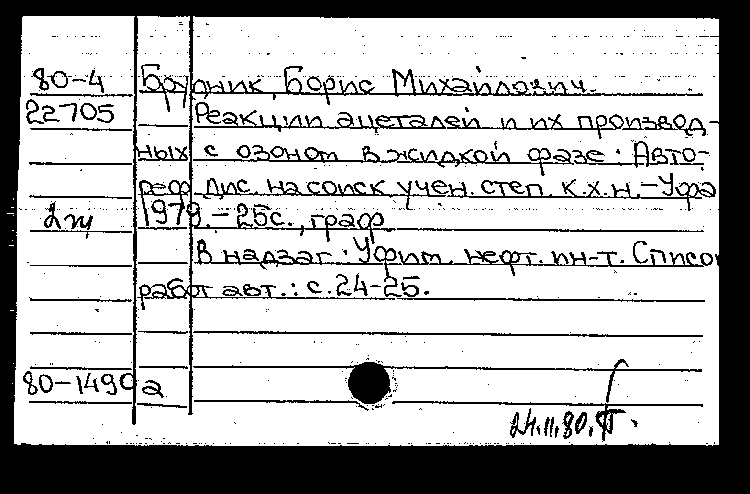 80-4 Брудник, Борис Михайлович.
22705 Реакции ацеталей и их производ-
ных с озоном в жидкой фазе: Авто-
реф. дис. на соиск. учен. степ. к.х.н.-Уфа
1979.-25с., граф.
В надзаг.: Уфим. нефт. ин-т. Список
работ авт.: с.24-25.
80-1490 а
24.11.80.